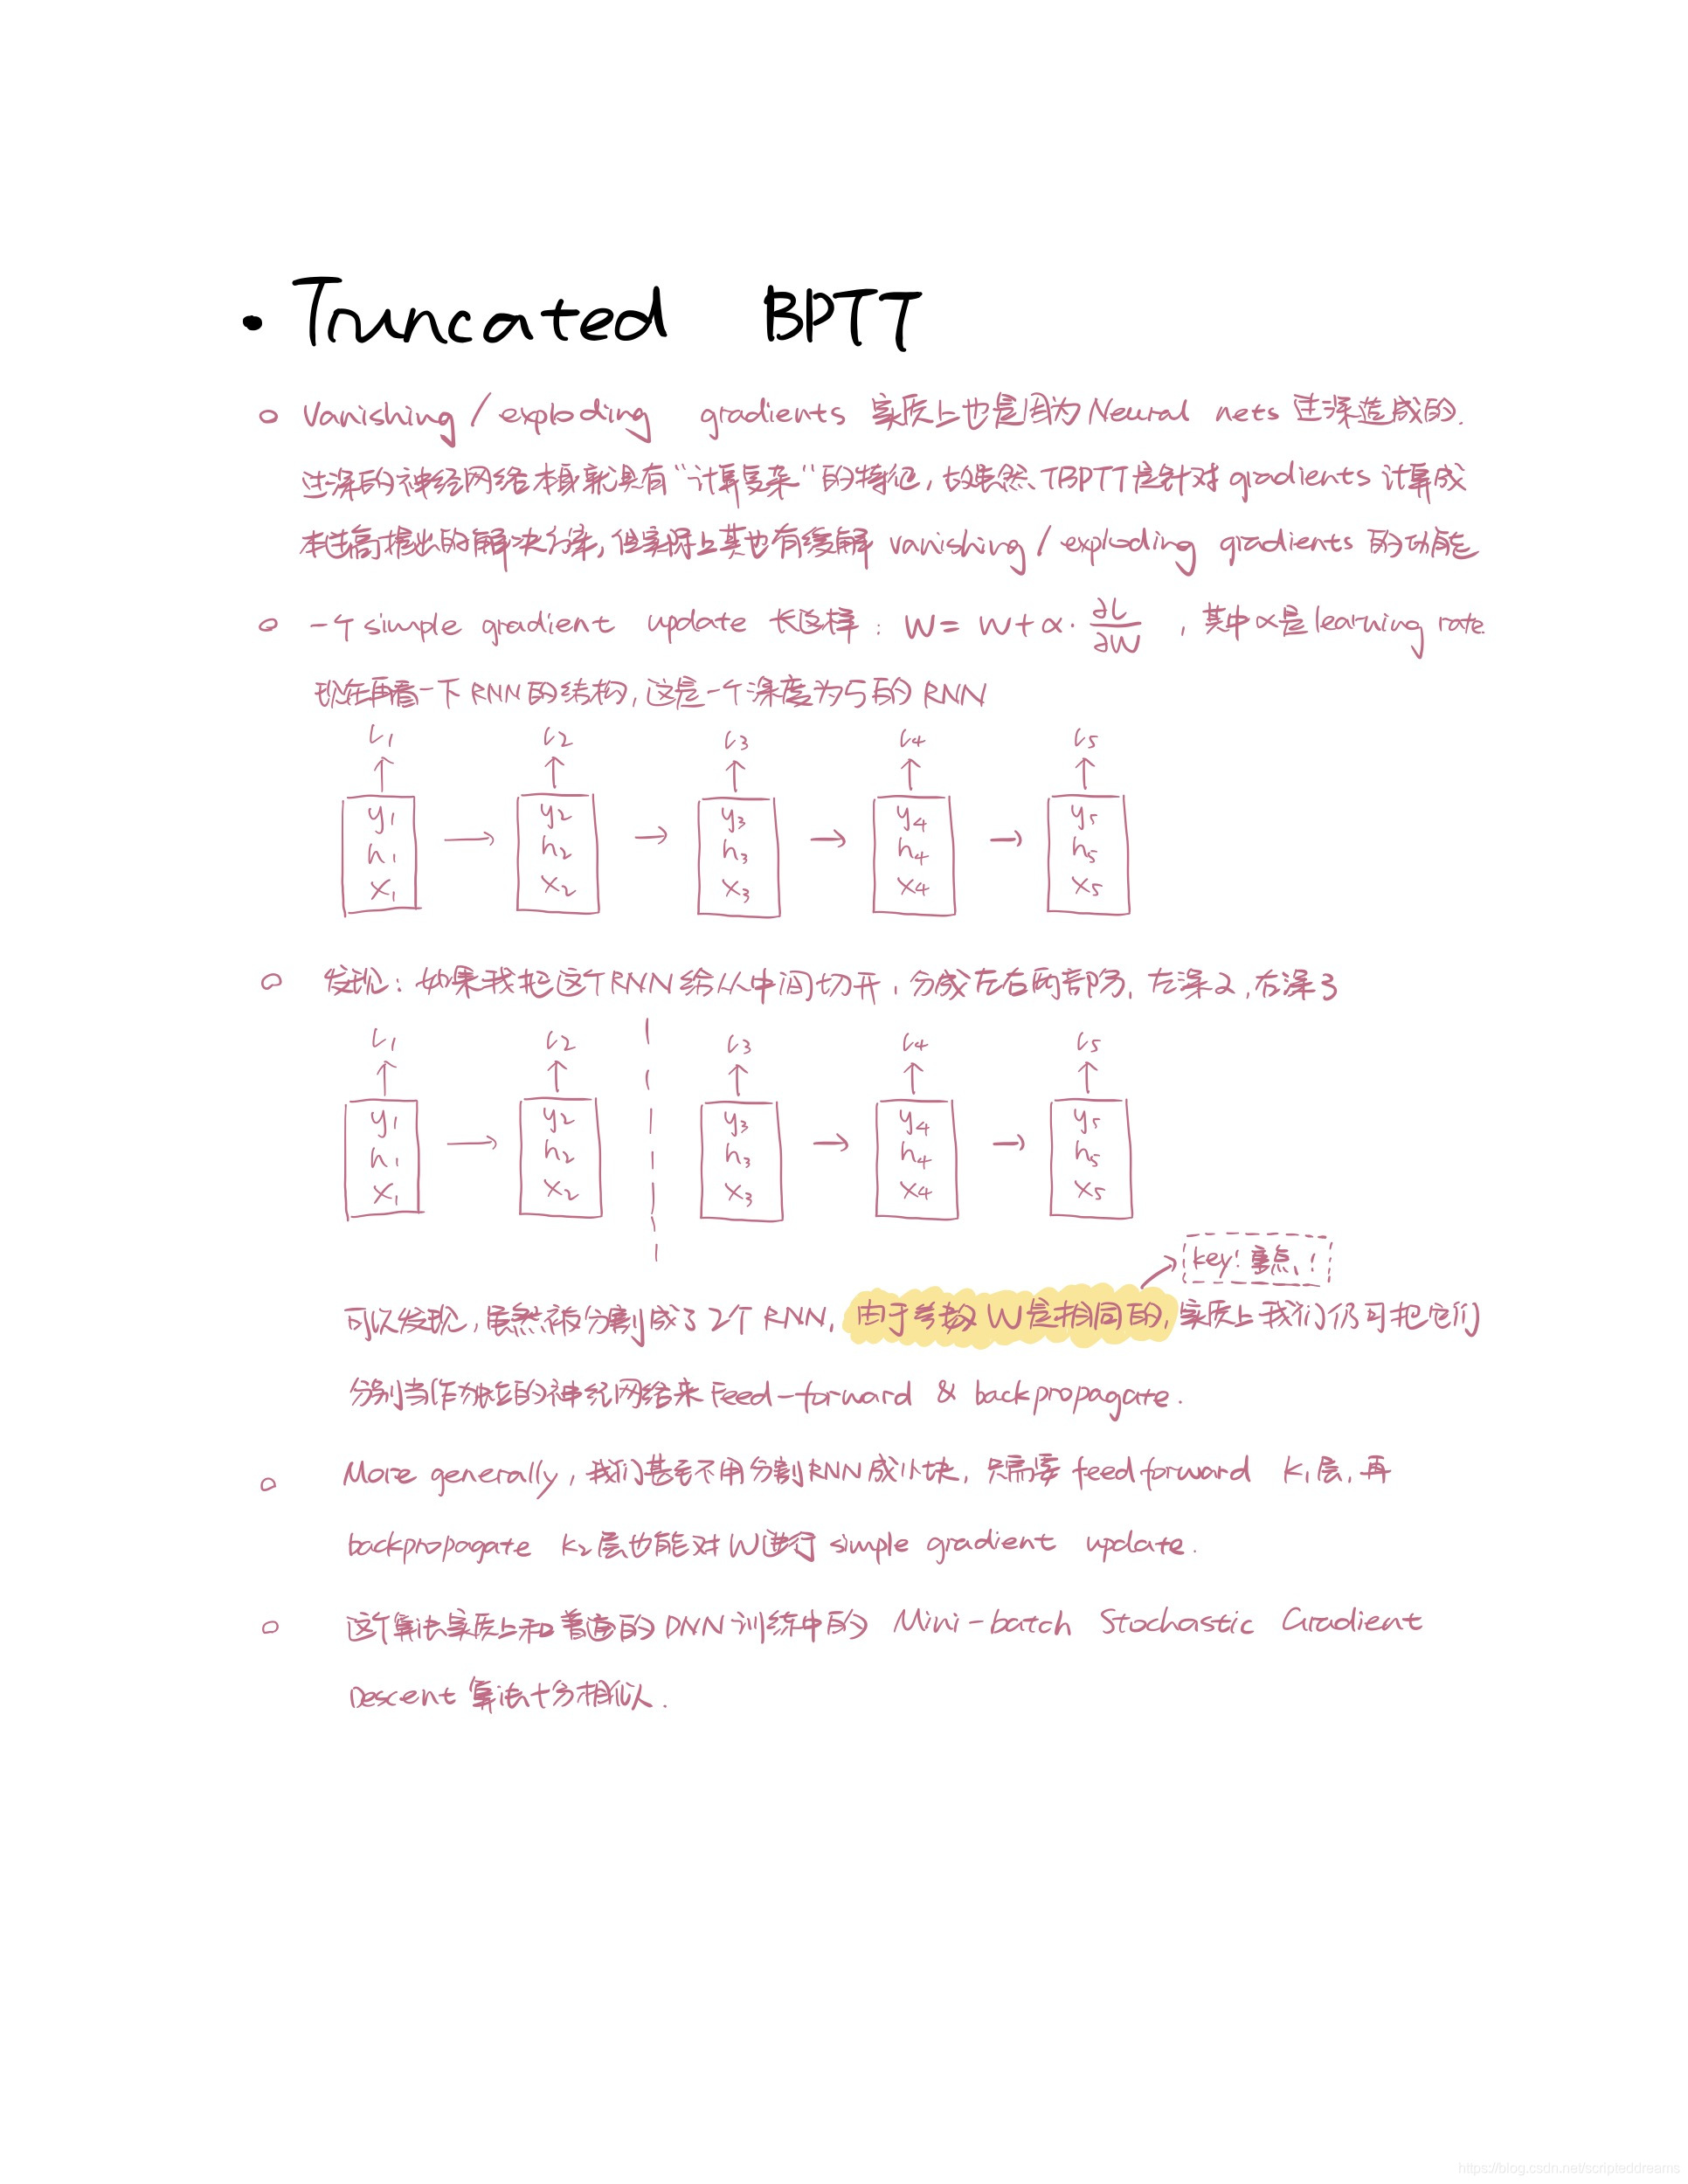 • Truncated BPTT
○ Vanishing/exploding gradients 实质上也是因为Neural nets 过深造成的.
过深的神经网络本身就具有“计算复杂”的特征,故虽然TBPTT是针对gradients计算成
本过高提出的解决方案,但实际上其也有缓解vanishing/exploding gradients的功能
○ 一个simple gradient update 长这样: W = W + α · ∂L/∂W , 其中α是learning rate
现在再看一下RNN的结构,这是一个深度为5的RNN
L1 L2 L3 L4 L5
↑ ↑ ↑ ↑ ↑
y1 y2 y3 y4 y5
h1 → h2 → h3 → h4 → h5
x1 x2 x3 x4 x5
○ 发现:如果我把这个RNN给从中间切开,分成左右两部分,左深2,右深3
L1 L2 L3 L4 L5
↑ ↑ ↑ ↑ ↑
y1 y2 y3 y4 y5
h1 → h2 h3 → h4 → h5
x1 x2 x3 x4 x5
key! 重点!
可以发现,虽然被分割成了2个RNN,由于参数W是相同的,实质上我们仍可把它们
分别当作独立的神经网络来Feed-forward & backpropagate.
○ More generally,我们甚至不用分割RNN成小块,只需要feedforward K1层,再
backpropagate K2层也能对W进行simple gradient update.
○ 这个算法实质上和普通的DNN训练中的Mini-batch Stochastic Gradient
Descent算法十分相似.
https://blog.csdn.net/scripteddreams